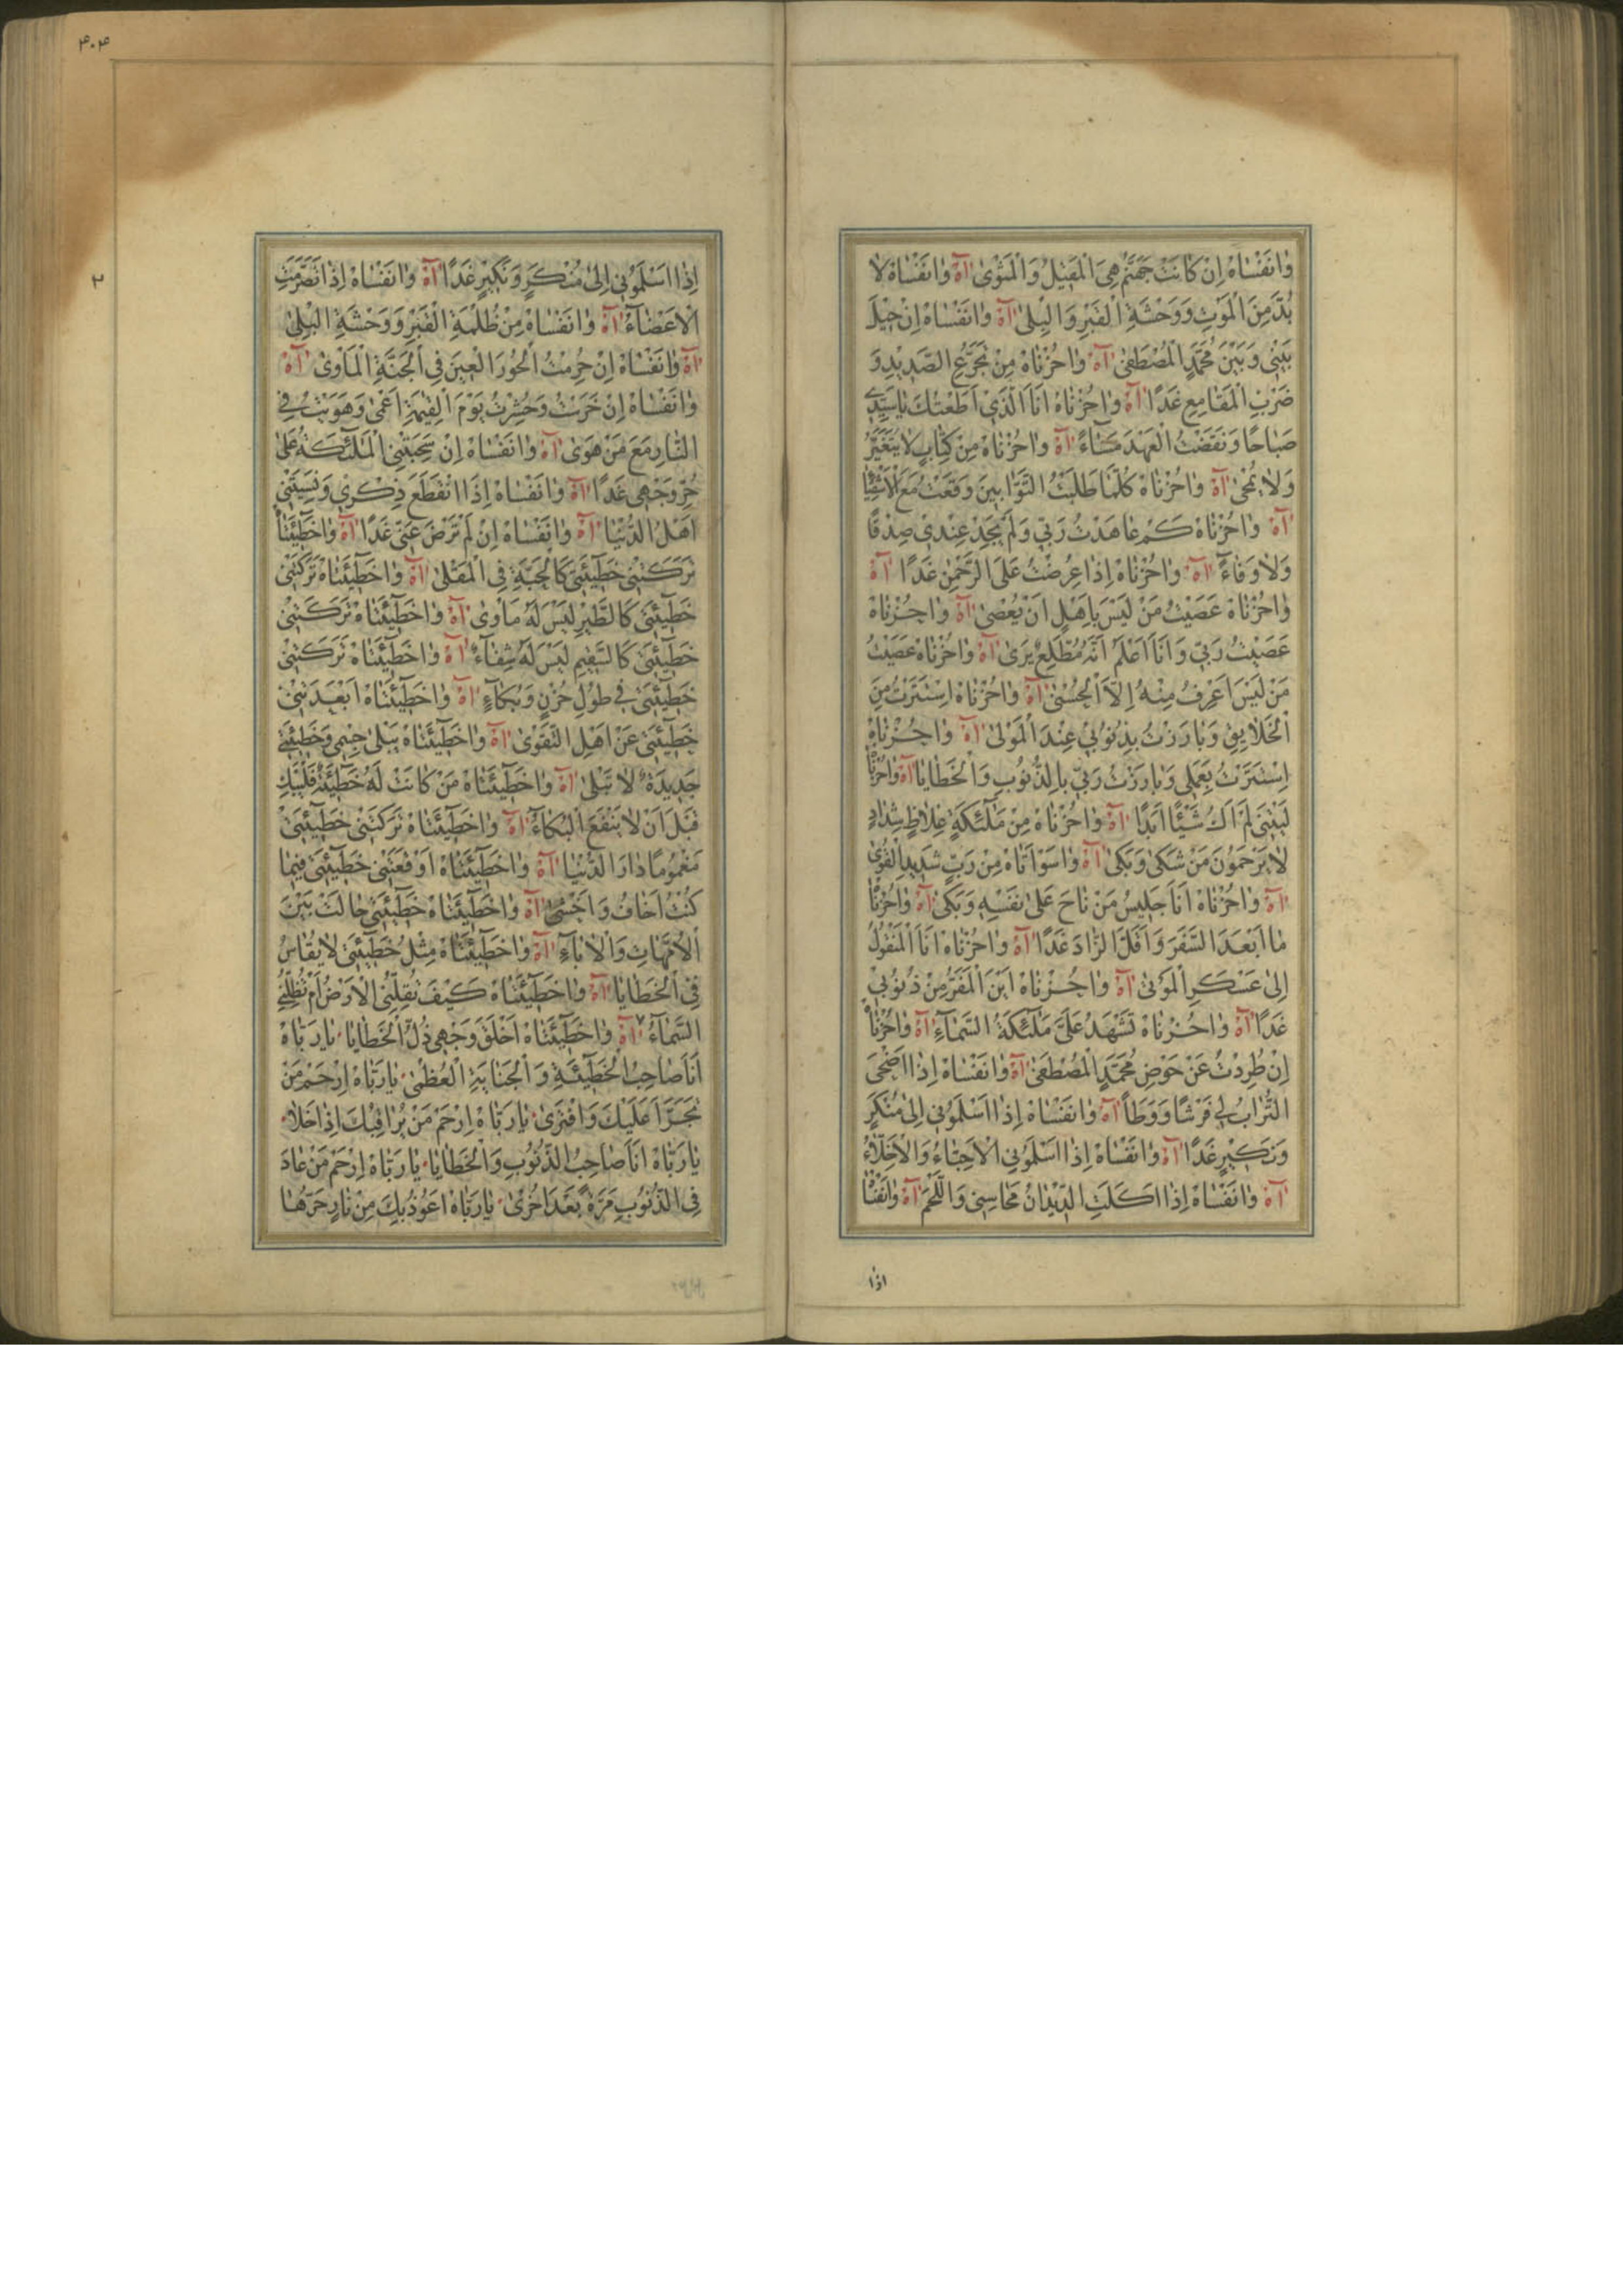 وٰانَفْسٰاهْ اِنْ كٰانَتْ جَهَنَّمُ هِىَ الْمَقيٖلُ وَالْمَثْوىٰ اٰهْ وٰانَفْسٰاهْ لاٰ
بُدَّ مِنَ الْمَوْتِ وَوَحْشَةِ الْقَبْرِ وَالْبِلىٰ اٰهْ وٰانَفْسٰاهْ اِنْ حيٖلَ
بَيْنٖى وَبَيْنَ مُحَمَّدٍ الْمُصْطَفىٰ اٰهْ وٰاحُزْنٰاهْ مِنْ تَجَرُّعِ الصَّديٖدِ وَ
ضَرْبِ الْمَقٰامِعِ غَدًا اٰهْ وٰاحُزْنٰاهْ اَنَا الَّذٖى اَطَعْتُكَ يٰاسَيِّدٖى
صَبٰاحًا وَنَقَضْتُ الْعَهْدَ مَسٰاءً اٰهْ وٰاحُزْنٰاهْ مِنْ كِتٰابٍ لاٰيَتَغَيَّرُ
وَلاٰ يُمْحىٰ اٰهْ وٰاحُزْنٰاهْ كُلَّمٰا طَلَبْتُ التَّوّٰابيٖنَ وَقَعْتُ مَعَ الْاَشْقِيٰا
اٰهْ وٰاحُزْنٰاهْ كَمْ عٰاهَدْتُ رَبّٖى وَلَمْ يَجِدْ عِنْدٖى صِدْقًا
وَلاٰ وَفٰاءً اٰهْ وٰاحُزْنٰاهْ اِذٰا عُرِضْتُ عَلَى الرَّحْمٰنِ غَدًا اٰهْ
وٰاحُزْنٰاهْ عَصَيْتُ مَنْ لَيْسَ بِاَهْلٍ اَنْ يُعْصىٰ اٰهْ وٰاحُزْنٰاهْ
عَصَيْتُ رَبّٖى وَاَنَا اَعْلَمُ اَنَّهُ مُطَّلِعٌ يَرىٰ اٰهْ وٰاحُزْنٰاهْ عَصَيْتُ
مَنْ لَيْسَ اَعْرِفُ مِنْهُ اِلاَّ الْحُسْنىٰ اٰهْ وٰاحُزْنٰاهْ اِسْتَتَرْتُ مِنَ
الْخَلاٰيِقِ وَبٰارَزْتُ بِذُنُوبٖى عِنْدَ الْمَوْلىٰ اٰهْ وٰاحُزْنٰاهْ
اِسْتَتَرْتُ بِعَمَلٖى وَبٰارَزْتُ رَبّٖى بِالذُّنُوبِ وَالْخَطٰايٰا اٰهْ وٰاحُزْنٰا
لَيْتَنٖى لَمْ اَكُ شَيْئًا اَبَدًا اٰهْ وٰاحُزْنٰاهْ مِنْ مَلٰٓئِكَةٍ غِلاٰظٍ شِدٰادٍ
لاٰيَرْحَمُونَ مَنْ شَكىٰ وَبَكىٰ اٰهْ وٰاسَوْاَتٰاهْ مِنْ رَبٍّ شَديٖدِ الْقُوىٰ
اٰهْ وٰاحُزْنٰاهْ اَنَا جَليٖسُ مَنْ نٰاحَ عَلىٰ نَفْسِهٖ وَبَكىٰ اٰهْ وٰاحُزْنٰا
مٰا اَبْعَدَ السَّفَرَ وَاَقَلَّ الزّٰادَ غَدًا اٰهْ وٰاحُزْنٰاهْ اَنَا الْمَنْقُولُ
اِلىٰ عَسْكَرِ الْمَوْتىٰ اٰهْ وٰاحُزْنٰاهْ اَيْنَ الْمَفَرُّ مِنْ ذُنُوبٖى
غَدًا اٰهْ وٰاحُزْنٰاهْ تَشْهَدُ عَلَىَّ مَلٰٓئِكَةُ السَّمٰاءِ اٰهْ وٰاحُزْنٰا
اِنْ طُرِدْتُ عَنْ حَوْضِ مُحَمَّدٍ الْمُصْطَفىٰ اٰهْ وٰانَفْسٰاهْ اِذٰا اَضْحىٰ
التُّرٰابُ لٖى فَرْشًا وَوَطَاً اٰهْ وٰانَفْسٰاهْ اِذٰا اَسْلَمُونٖى اِلىٰ مُنْكَرٍ
وَنَكيٖرٍ غَدًا اٰهْ وٰانَفْسٰاهْ اِذٰا اَسْلَمُونِى الْاَحِبّٰاءُ وَالْاَخِلّٰاءُ
اٰهْ وٰانَفْسٰاهْ اِذٰا اَكَلَتِ الدّٖيدٰانُ مَحٰاسِنٖى وَاللَّحْمَ اٰهْ وٰانَفْسٰا
اذا
٣٠٤
٢
اِذٰا اَسْلَمُونٖى اِلىٰ مُنْكَرٍ وَنَكيٖرٍ غَدًا اٰهْ وٰانَفْسٰاهْ اِذٰا تَصَرَّمَتِ
الْاَعْضٰاءُ اٰهْ وٰانَفْسٰاهْ مِنْ ظُلْمَةِ الْقَبْرِ وَوَحْشَةِ الْبِلىٰ
اٰهْ وٰانَفْسٰاهْ اِنْ حُرِمْتُ الْحُورَ الْعيٖنَ فِى الْجَنَّةِ الْمَاْوىٰ اٰهْ
وٰانَفْسٰاهْ اِنْ خَرَبْتُ وَحُشِرْتُ يَوْمَ الْقِيٰمَةِ اَعْمىٰ وَهَوَيْتُ فِى
النّٰارِ مَعَ مَنْ هَوىٰ اٰهْ وٰانَفْسٰاهْ اِنْ سَحَبَتْنِى الْمَلٰٓئِكَةُ عَلىٰ
حُرِّ وَجْهٖى غَدًا اٰهْ وٰانَفْسٰاهْ اِذَا انْقَطَعَ ذِكْرٖى وَنَسِيَنٖى
اَهْلُ الدُّنْيٰا اٰهْ وٰانَفْسٰاهْ اِنْ لَمْ تَرْضَ عَنّٖى غَدًا اٰهْ وٰاخَطٖٓيئَتٰا
تَرَكَتْنٖى خَطٖٓيئَتٖى كَالْحَبَّةِ فِى الْمَقْلىٰ اٰهْ وٰاخَطٖٓيئَتٰاهْ تَرَكَتْنٖى
خَطٖٓيئَتٖى كَالطَّيْرِ لَيْسَ لَهُ مَاْوىٰ اٰهْ وٰاخَطٖٓيئَتٰاهْ تَرَكَتْنٖى
خَطٖٓيئَتٖى كَالسَّقيٖمِ لَيْسَ لَهُ شِفٰاءٌ اٰهْ وٰاخَطٖٓيئَتٰاهْ تَرَكَتْنٖى
خَطٖٓيئَتٖى فٖى طُولِ حُزْنٍ وَبُكٰاءٍ اٰهْ وٰاخَطٖٓيئَتٰاهْ اَبْعَدَتْنٖى
خَطٖٓيئَتٖى عَنْ اَهْلِ التَّقْوىٰ اٰهْ وٰاخَطٖٓيئَتٰاهْ يَبْلىٰ جِسْمٖى وَخَطٖيئَتٖى
جَديٖدَةٌ لاٰ تَبْلىٰ اٰهْ وٰاخَطٖٓيئَتٰاهْ مَنْ كٰانَتْ لَهُ خَطٖٓيئَةٌ فَلْيَبْكِ
قَبْلَ اَنْ لاٰيَنْفَعَ الْبُكٰاءُ اٰهْ وٰاخَطٖٓيئَتٰاهْ تَرَكَتْنٖى خَطٖٓيئَتٖى
مَغْمُومًا دٰارَ الدُّنْيٰا اٰهْ وٰاخَطٖٓيئَتٰاهْ اَوْقَعَتْنٖى خَطٖٓيئَتٖى فيٖمٰا
كُنْتُ اَخٰافُ وَاَخْشىٰ اٰهْ وٰاخَطٖٓيئَتٰاهْ خَطٖٓيئَتٖى حٰالَتْ بَيْنَ
الْاُمَّهٰاتِ وَالْاٰبٰاءِ اٰهْ وٰاخَطٖٓيئَتٰاهْ مِثْلُ خَطٖٓيئَتٖى لاٰيُقٰاسُ
فِى الْخَطٰايٰا اٰهْ وٰاخَطٖٓيئَتٰاهْ كَيْفَ تُقِلُّنِى الْاَرْضُ اَمْ تُظِلُّنِى
السَّمٰاءُ اٰهْ وٰاخَطٖٓيئَتٰاهْ اَخْلَقَ وَجْهٖى ذُلُّ الْخَطٰايٰا يٰارَبّٰاهْ
اَنَا صٰاحِبُ الْخَطٖٓيئَةِ وَالْجَنٰايَةِ الْعُظْمىٰ يٰارَبّٰاهْ اِرْحَمْ مَنْ
تَجَرَّاَ عَلَيْكَ وَافْتَرىٰ يٰارَبّٰاهْ اِرْحَمْ مَنْ يُرٰاقِبُكَ اِذٰا خَلاٰ
يٰارَبّٰاهْ اَنَا صٰاحِبُ الذُّنُوبِ وَالْخَطٰايٰا يٰارَبّٰاهْ اِرْحَمْ مَنْ عٰادَ
فِى الذُّنُوبِ مَرَّةً بَعْدَ اُخْرىٰ يٰارَبّٰاهْ اَعُوذُ بِكَ مِنْ نٰارٍ حَرُّهٰا